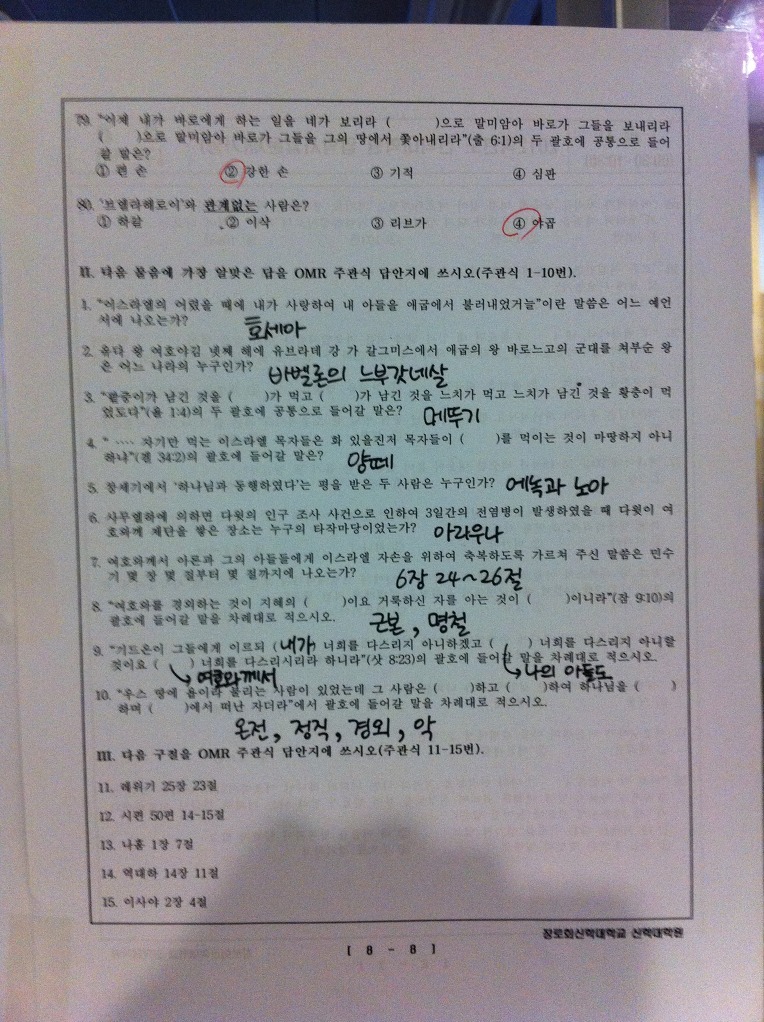 79. "이제 내가 바로에게 하는 일을 네가 보리라 (      )으로 말미암아 바로가 그들을 보내리라
(      )으로 말미암아 바로가 그들을 그의 땅에서 쫓아내리라"(출 6:1)의 두 괄호에 공통으로 들어
갈 말은?
① 편 손 ② 강한 손 ③ 기적 ④ 심판
80. '브엘라해로이'와 관계없는 사람은?
① 하갈 ② 이삭 ③ 리브가 ④ 야곱
II. 다음 물음에 가장 알맞은 답을 OMR 주관식 답안지에 쓰시오(주관식 1-10번).
1. "이스라엘의 어렸을 때에 내가 사랑하여 내 아들을 애굽에서 불러내었거늘"이란 말씀은 어느 예언
서에 나오는가?
호세아
2. 유다 왕 여호야김 넷째 해에 유브라데 강 가 갈그미스에서 애굽의 왕 바로느고의 군대를 쳐부순 왕
은 어느 나라의 누구인가? 바벨론의 느부갓네살
3. "팥중이가 남긴 것을 (      )가 먹고 (      )가 남긴 것을 느치가 먹고 느치가 남긴 것을 황충이 먹
었도다"(욜 1:4)의 두 괄호에 공통으로 들어갈 말은? 메뚜기
4. " ···· 자기만 먹는 이스라엘 목자들은 화 있을진저 목자들이 (      )를 먹이는 것이 마땅하지 아니
하냐"(겔 34:2)의 괄호에 들어갈 말은? 양떼
5. 창세기에서 '하나님과 동행하였다'는 평을 받은 두 사람은 누구인가? 에녹과 노아
6. 사무엘하에 의하면 다윗의 인구 조사 사건으로 인하여 3일간의 전염병이 발생하였을 때 다윗이 여
호와께 제단을 쌓은 장소는 누구의 타작마당이었는가? 아라우나
7. 여호와께서 아론과 그의 아들들에게 이스라엘 자손을 위하여 축복하도록 가르쳐 주신 말씀은 민수
기 몇 장 몇 절부터 몇 절까지에 나오는가? 6장 24~26절
8. "여호와를 경외하는 것이 지혜의 (      )이요 거룩하신 자를 아는 것이 (      )이니라"(잠 9:10)의
괄호에 들어갈 말을 차례대로 적으시오. 근본, 명철
9. "기드온이 그들에게 이르되 (내가) 너희를 다스리지 아니하겠고 (      ) 너희를 다스리지 아니할
것이요 (      ) 너희를 다스리시리라 하니라"(삿 8:23)의 괄호에 들어갈 말을 차례대로 적으시오.
여호와께서 나의 아들도
10. "우스 땅에 욥이라 불리는 사람이 있었는데 그 사람은 (      )하고 (      )하여 하나님을 (      )
하며 (      )에서 떠난 자더라"에서 괄호에 들어갈 말을 차례대로 적으시오.
온전, 정직, 경외, 악
III. 다음 구절을 OMR 주관식 답안지에 쓰시오(주관식 11-15번).
11. 레위기 25장 23절
12. 시편 50편 14-15절
13. 나훔 1장 7절
14. 역대하 14장 11절
15. 이사야 2장 4절
장로회신학대학교 신학대학원
[ 8 - 8 ]